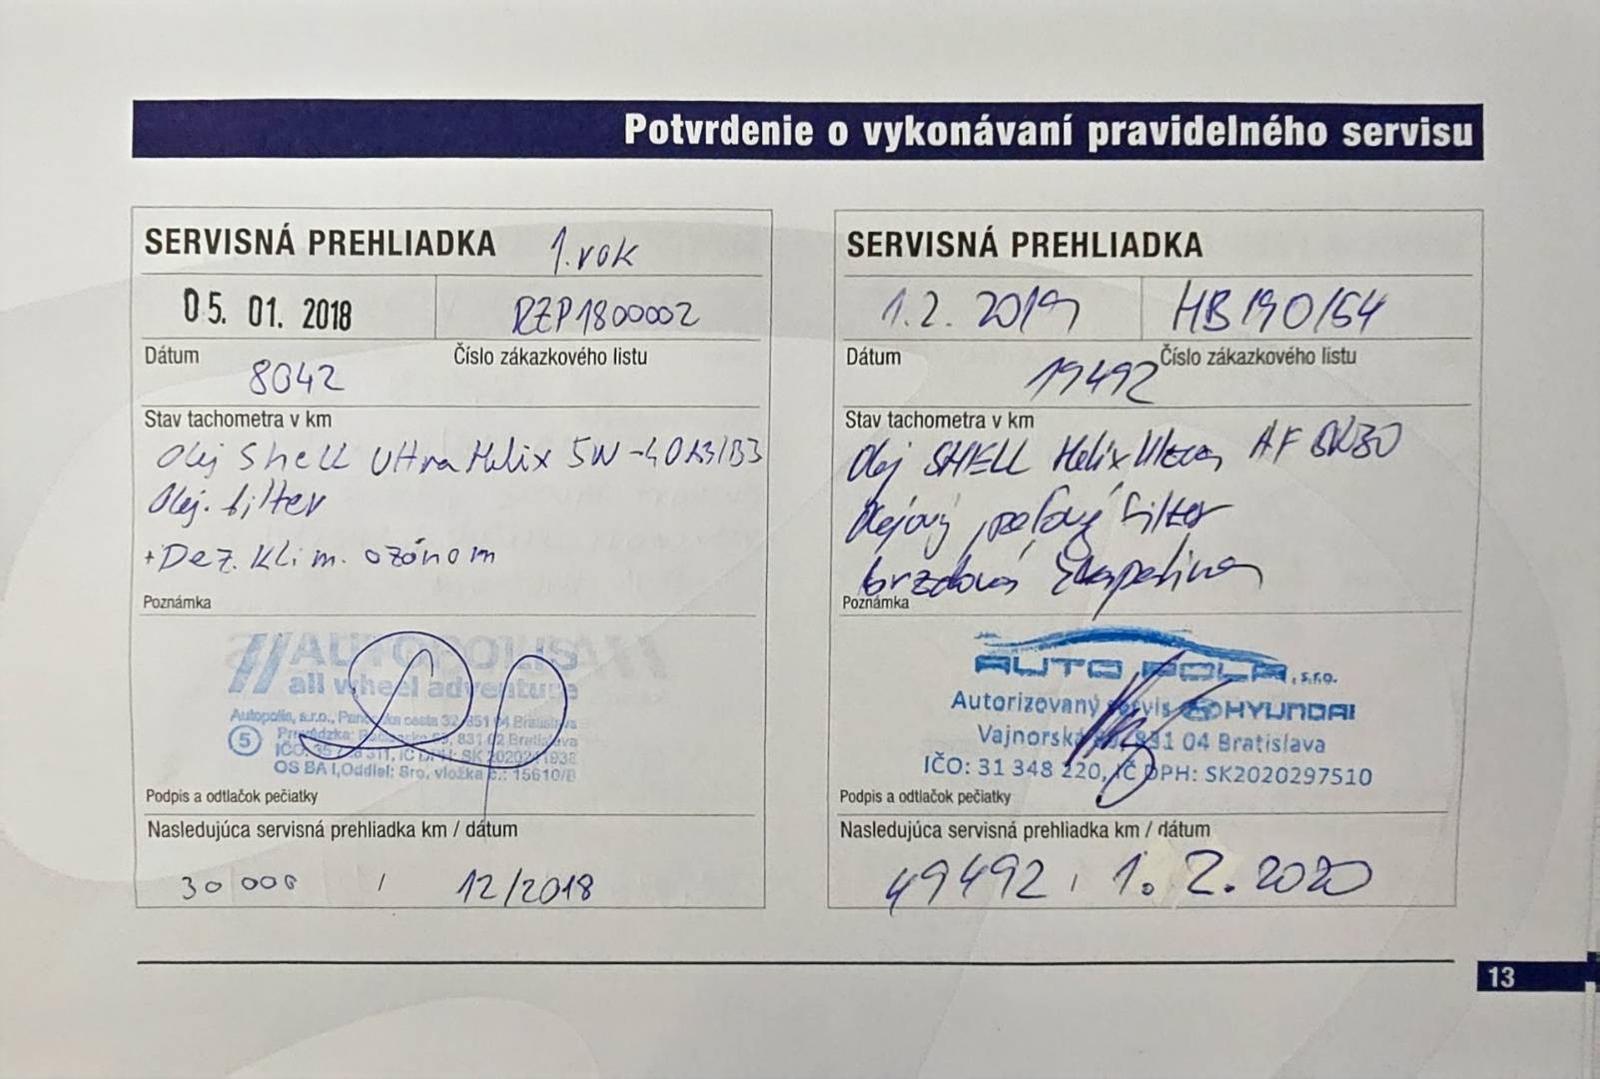 Potvrdenie o vykonávaní pravidelného servisu
SERVISNÁ PREHLIADKA 1. rok
05. 01. 2018 RZP1800002
Dátum Číslo zákazkového listu
8042
Stav tachometra v km
Olej Shell Ultra Helix 5W-40 A3/B3
Olej. filter
+ Dez. klim. ozónom
Poznámka
AUTOPOLIS
all wheel adventure
Autopolis, s.r.o., cesta 32, 851 04 Bratislava
5 Prevádzka: 831 02 Bratislava
IČO: IČ DPH: SK
OS BA I, Oddiel: Sro, vložka č.: 15610/B
Podpis a odtlačok pečiatky
Nasledujúca servisná prehliadka km / dátum
30 000 / 12/2018
SERVISNÁ PREHLIADKA
1.2. 2019 HB190154
Dátum Číslo zákazkového listu
19492
Stav tachometra v km
Olej SHELL Helix Ultra AF
Olejový, peľový filter
brzdová kvapalina
Poznámka
AUTO POLA, s.r.o.
Autorizovaný servis HYUNDAI
Vajnorská 831 04 Bratislava
IČO: 31 348 220, IČ DPH: SK2020297510
Podpis a odtlačok pečiatky
Nasledujúca servisná prehliadka km / dátum
49492 / 1. 2. 2020
13